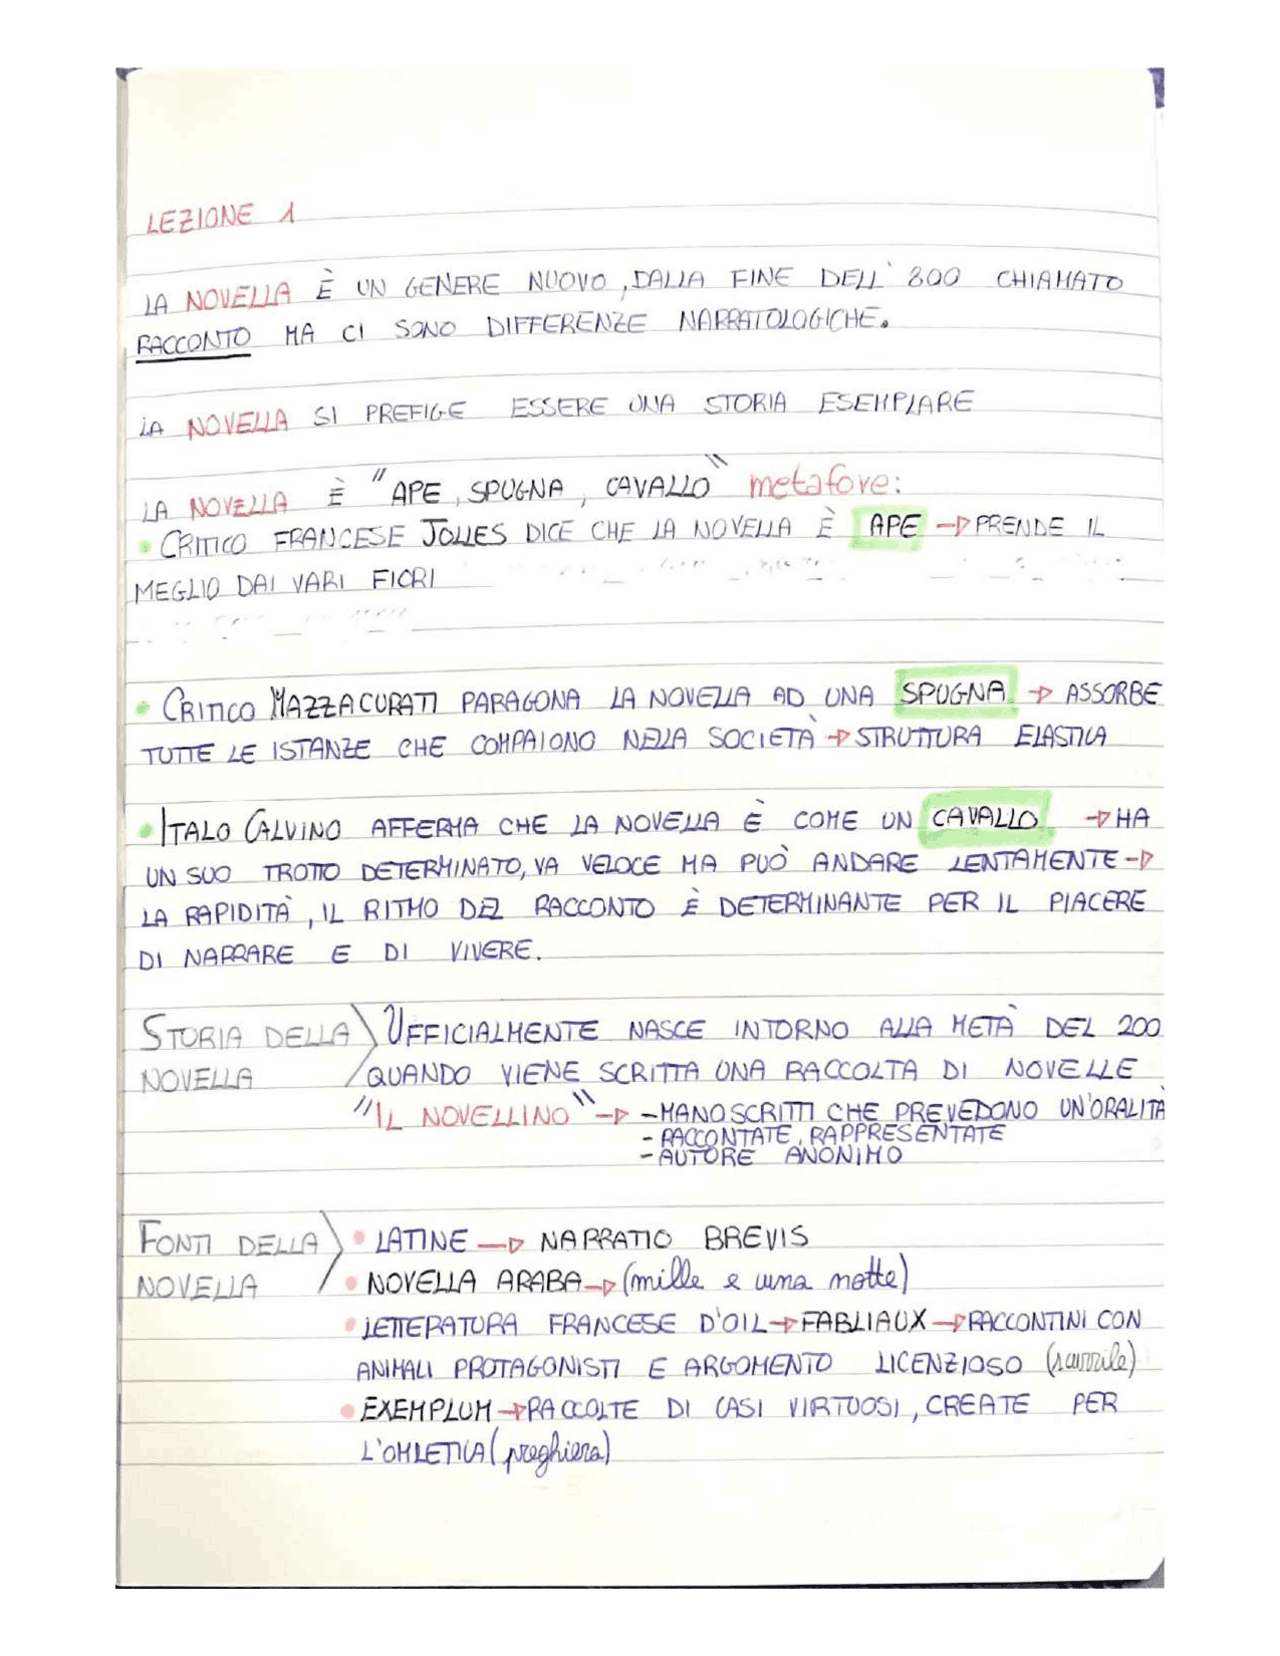 LEZIONE 1
LA NOVELLA È UN GENERE NUOVO, DALLA FINE DELL' 800 CHIAMATO
RACCONTO MA CI SONO DIFFERENZE NARRATOLOGICHE.
LA NOVELLA SI PREFIGE ESSERE UNA STORIA ESEMPLARE
LA NOVELLA È "APE, SPUGNA, CAVALLO" metafore:
• CRITICO FRANCESE JOLLES DICE CHE LA NOVELLA È APE → PRENDE IL
MEGLIO DAI VARI FIORI
• CRITICO MAZZACURATI PARAGONA LA NOVELLA AD UNA SPUGNA → ASSORBE
TUTTE LE ISTANZE CHE COMPAIONO NELLA SOCIETÀ → STRUTTURA ELASTICA
• ITALO CALVINO AFFERMA CHE LA NOVELLA È COME UN CAVALLO → HA
UN SUO TROTTO DETERMINATO, VA VELOCE MA PUÒ ANDARE LENTAMENTE →
LA RAPIDITÀ, IL RITMO DEL RACCONTO È DETERMINANTE PER IL PIACERE
DI NARRARE E DI VIVERE.
STORIA DELLA NOVELLA
UFFICIALMENTE NASCE INTORNO ALLA METÀ DEL 200
QUANDO VIENE SCRITTA UNA RACCOLTA DI NOVELLE
"IL NOVELLINO" → - MANOSCRITTI CHE PREVEDONO UN'ORALITÀ
- RACCONTATE, RAPPRESENTATE
- AUTORE ANONIMO
FONTI DELLA NOVELLA
• LATINE → NARRATIO BREVIS
• NOVELLA ARABA → (mille e una notte)
• LETTERATURA FRANCESE D'OIL → FABLIAUX → RACCONTINI CON
ANIMALI PROTAGONISTI E ARGOMENTO LICENZIOSO (scurrile)
• EXEMPLUM → RACCOLTE DI CASI VIRTUOSI, CREATE PER
L'OMLETICA (preghiera)